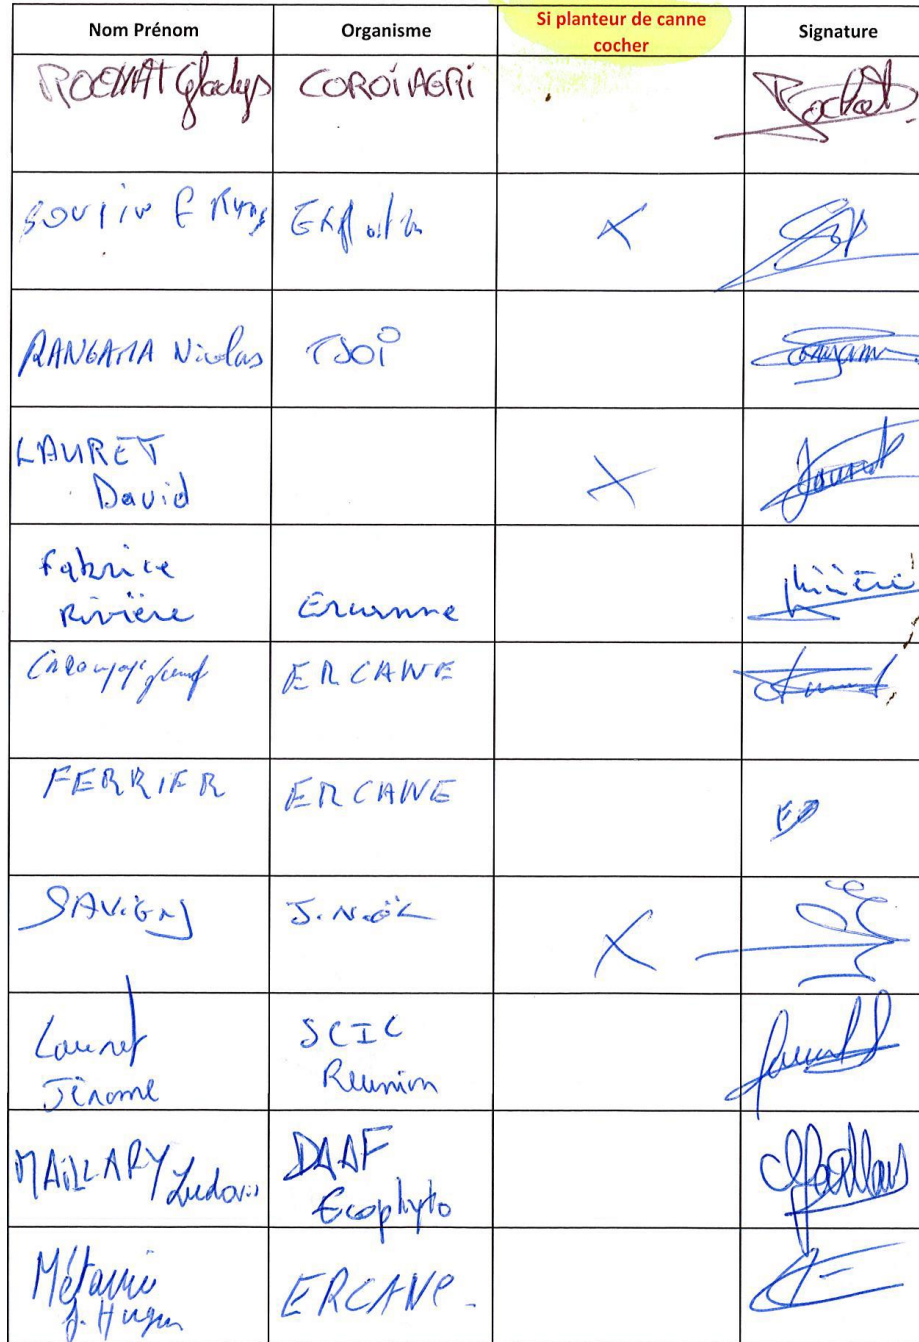 Nom Prénom Organisme Si planteur de canne cocher Signature
ROCHAT Gladys COROI AGRI Rochat
X
RANGAMA Nicolas TSOI
LAURET
David X
Fabrice
Rivière Ercanne Rivière
ERCANE
FERRIER ERCANE
SAVIGNY J. NOËL X
Lauret SCIC
Jérome Reunion
MAILLARY Ludovic DAAF
Ecophyto
J. Hugues ERCANE.